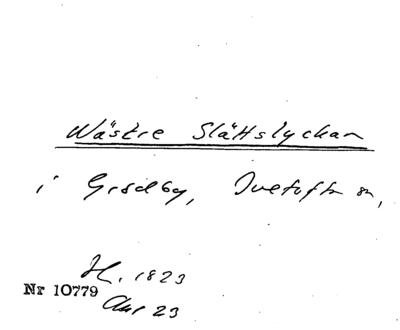 Wästre Slättslyckan
i Gisslöv, Ivetofta sn,
H. 1823
Nr 10779
23